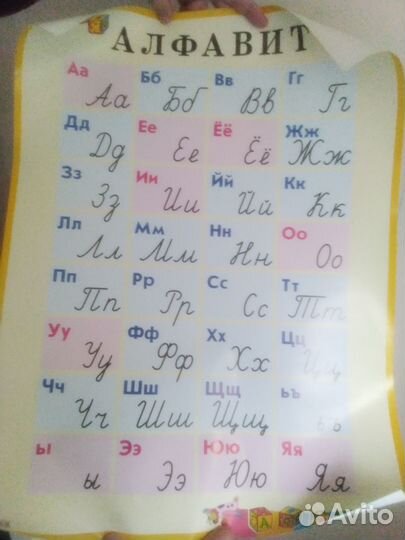 АЛФАВИТ
Аа Бб Вв Гг
Аа Бб Вв Гг
Дд Ее Ёё Жж
Дд Ее Ёё Жж
Зз Ии Йй Кк
Зз Ии Йй Кк
Лл Мм Нн Оо
Лл Мм Нн Оо
Пп Рр Сс Тт
Пп Рр Сс Тт
Уу Фф Хх Цц
Уу Фф Хх Цц
Чч Шш Щщ ьъ
Чч Шш Щщ ьъ
ы Ээ Юю Яя
ы Ээ Юю Яя
А
Avito